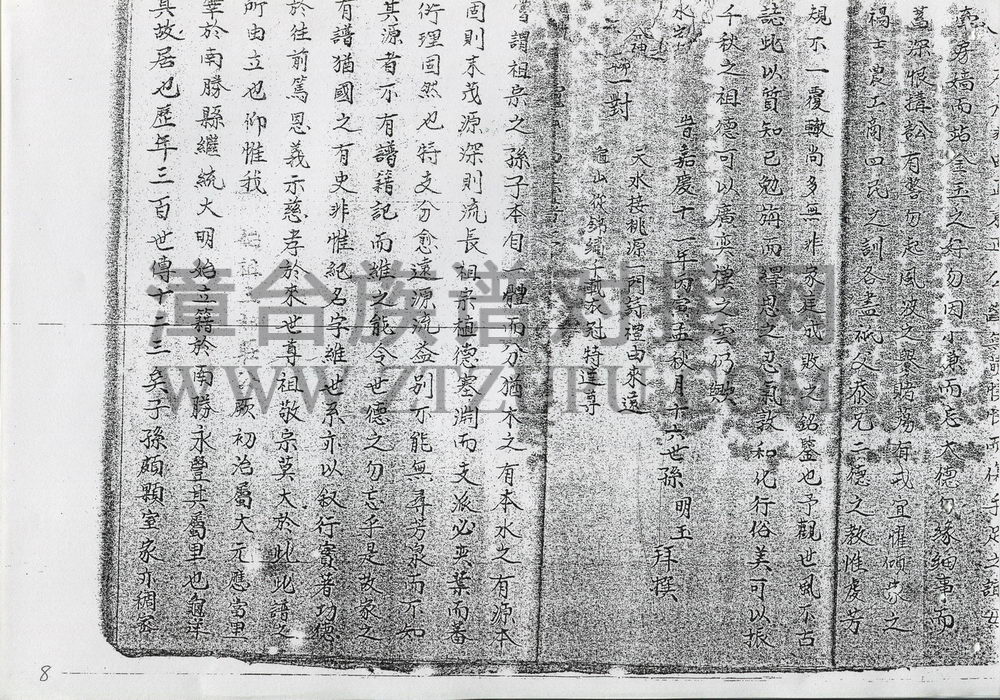 房墙而站金玉之好勿因小兼而忘大德勿緣細事而
深恨搆訟有害勿起風波之暴賭蕩有戒宜懼傾家之
禍士農工商四民之訓各盡砥父恭兄二德之教惟虔芳
規不一覆轍尚多無非家庭成敗之銘鑒也予觀世風不古
誌此以質知己勉誨而繹思之忍氣教和化行俗美可以振
千秋之祖德可以廣奕禩之雲仍歟
旹嘉慶十一年丙寅孟秋月十六世孫明玉拜撰
一對
天水接桃源一門詩禮由來遠
山從錦繡千載衣冠特達尊
嘗謂祖宗之孫子本自一體而分猶木之有本水之有源本
固則末茂源深則流長祖宗植德塞淵而支派必奕葉而蕃
衍理固然也特支分愈遠源流益別不能無尋芳泉而不如
其源者不有譜籍記而維之能令世德之勿忘乎是故家之
有譜猶國之有史非惟紀名字維世系亦以叙行實著功德
於往前篤恩義示慈孝於來世尊祖敬宗莫大於此此譜之
所由立也仰惟我 公厥初治屬大元應當里
於南勝縣繼統大明始立籍於南勝永豐其屬里也
其故居也歷年三百世傳十二三矣子孫頗顆室家亦稠密
道台族谱对接网
WWW.ZTZUTU.COM
8